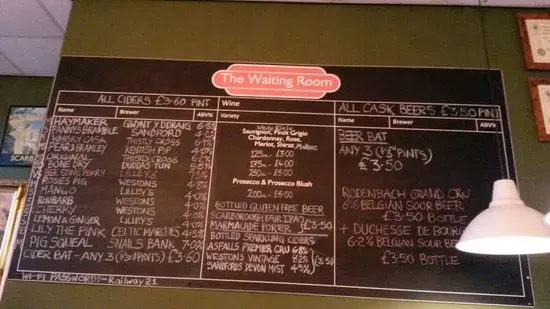 The Waiting Room
ALL CIDERS £3.60 PINT
Name Brewer ABV%
HAYMAKER GWYNT Y DDRAIG 6.5%
FANNY'S BRAMBLE SANDFORD 4%
WHISKY CASK THISTLY CROSS
PEARSA BRAMLEY KENTISH PIP
ORIGINAL THISTLY CROSS 6.2%
BONE DRY DUDDAS TUN
BEE STING PERRY LILLEY'S
ROSIE'S PIG WESTONS 4.8%
MANGO LILLEY'S 4.0%
RHUBARB WESTONS 4.0%
CHERRY LILLEY'S 4.0%
LEMON & GINGER LILLEY'S 4.0%
LILY THE PINK CELTIC MARCHES 4.5%
PIG SQUEAL SNAILS BANK 7.0%
CIDER BAT - ANY 3 (1/3rd PINTS) £3.60
WI-FI PASSWORD!-Railway21
Wine
Variety
Sauvignon, Pinot Grigio
Chardonnay, Rose,
Merlot, Shiraz, Malbec
125ml - £3:00
175ml - £4:00
250ml - £5:00
Prosecco & Prosecco Blush
BOTTLED GLUTEN FREE BEER
SCARBOROUGH FAIR (IPA)
MARMALADE PORTER £3.50
BOTTLED SPARKLING CIDERS
ASPALLS PREMIER CRU
WESTONS VINTAGE 8.2% £3.50
SANDFORDS DEVON MIST 4.5%
ALL CASK BEERS £3.50 PINT
Name Brewer ABV%
BEER BAT
ANY 3 (1/3rd PINTS)
£3.50
RODENBACH GRAND CRU
6% BELGIAN SOUR BEER
£3.50 BOTTLE
+ DUCHESSE DE BOURG
6.2% BELGIAN SOUR BEER
£3.50 BOTTLE
SCARB